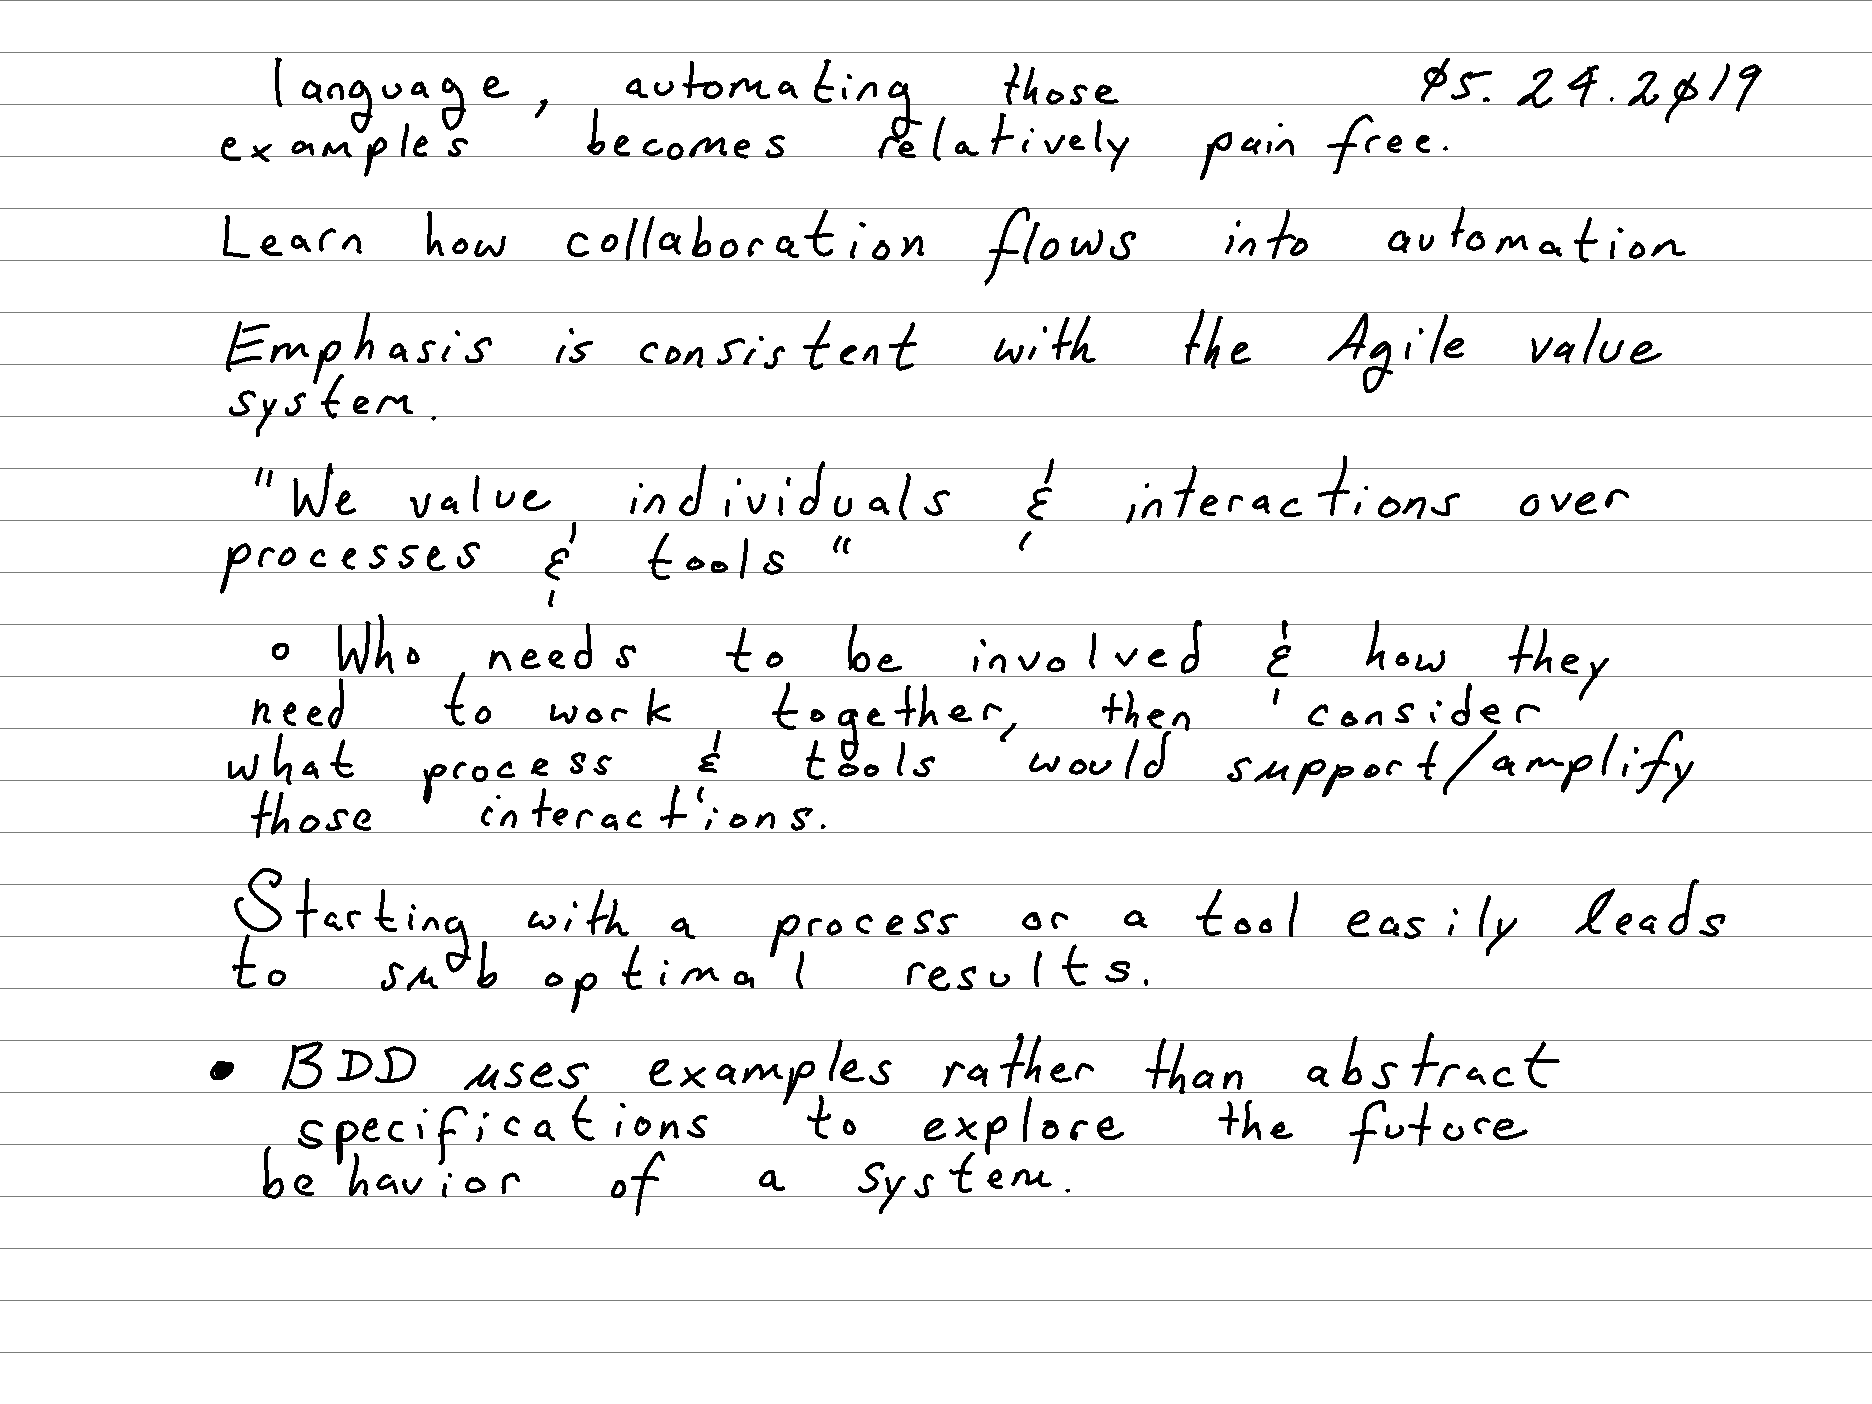 language, automating those 05.24.2019
examples becomes relatively pain free.
Learn how collaboration flows into automation
Emphasis is consistent with the Agile value
system.
"We value individuals & interactions over
processes & tools"
◦ Who needs to be involved & how they
need to work together, then consider
what process & tools would support/amplify
those interactions.
Starting with a process or a tool easily leads
to sub optimal results.
• BDD uses examples rather than abstract
specifications to explore the future
behavior of a system.